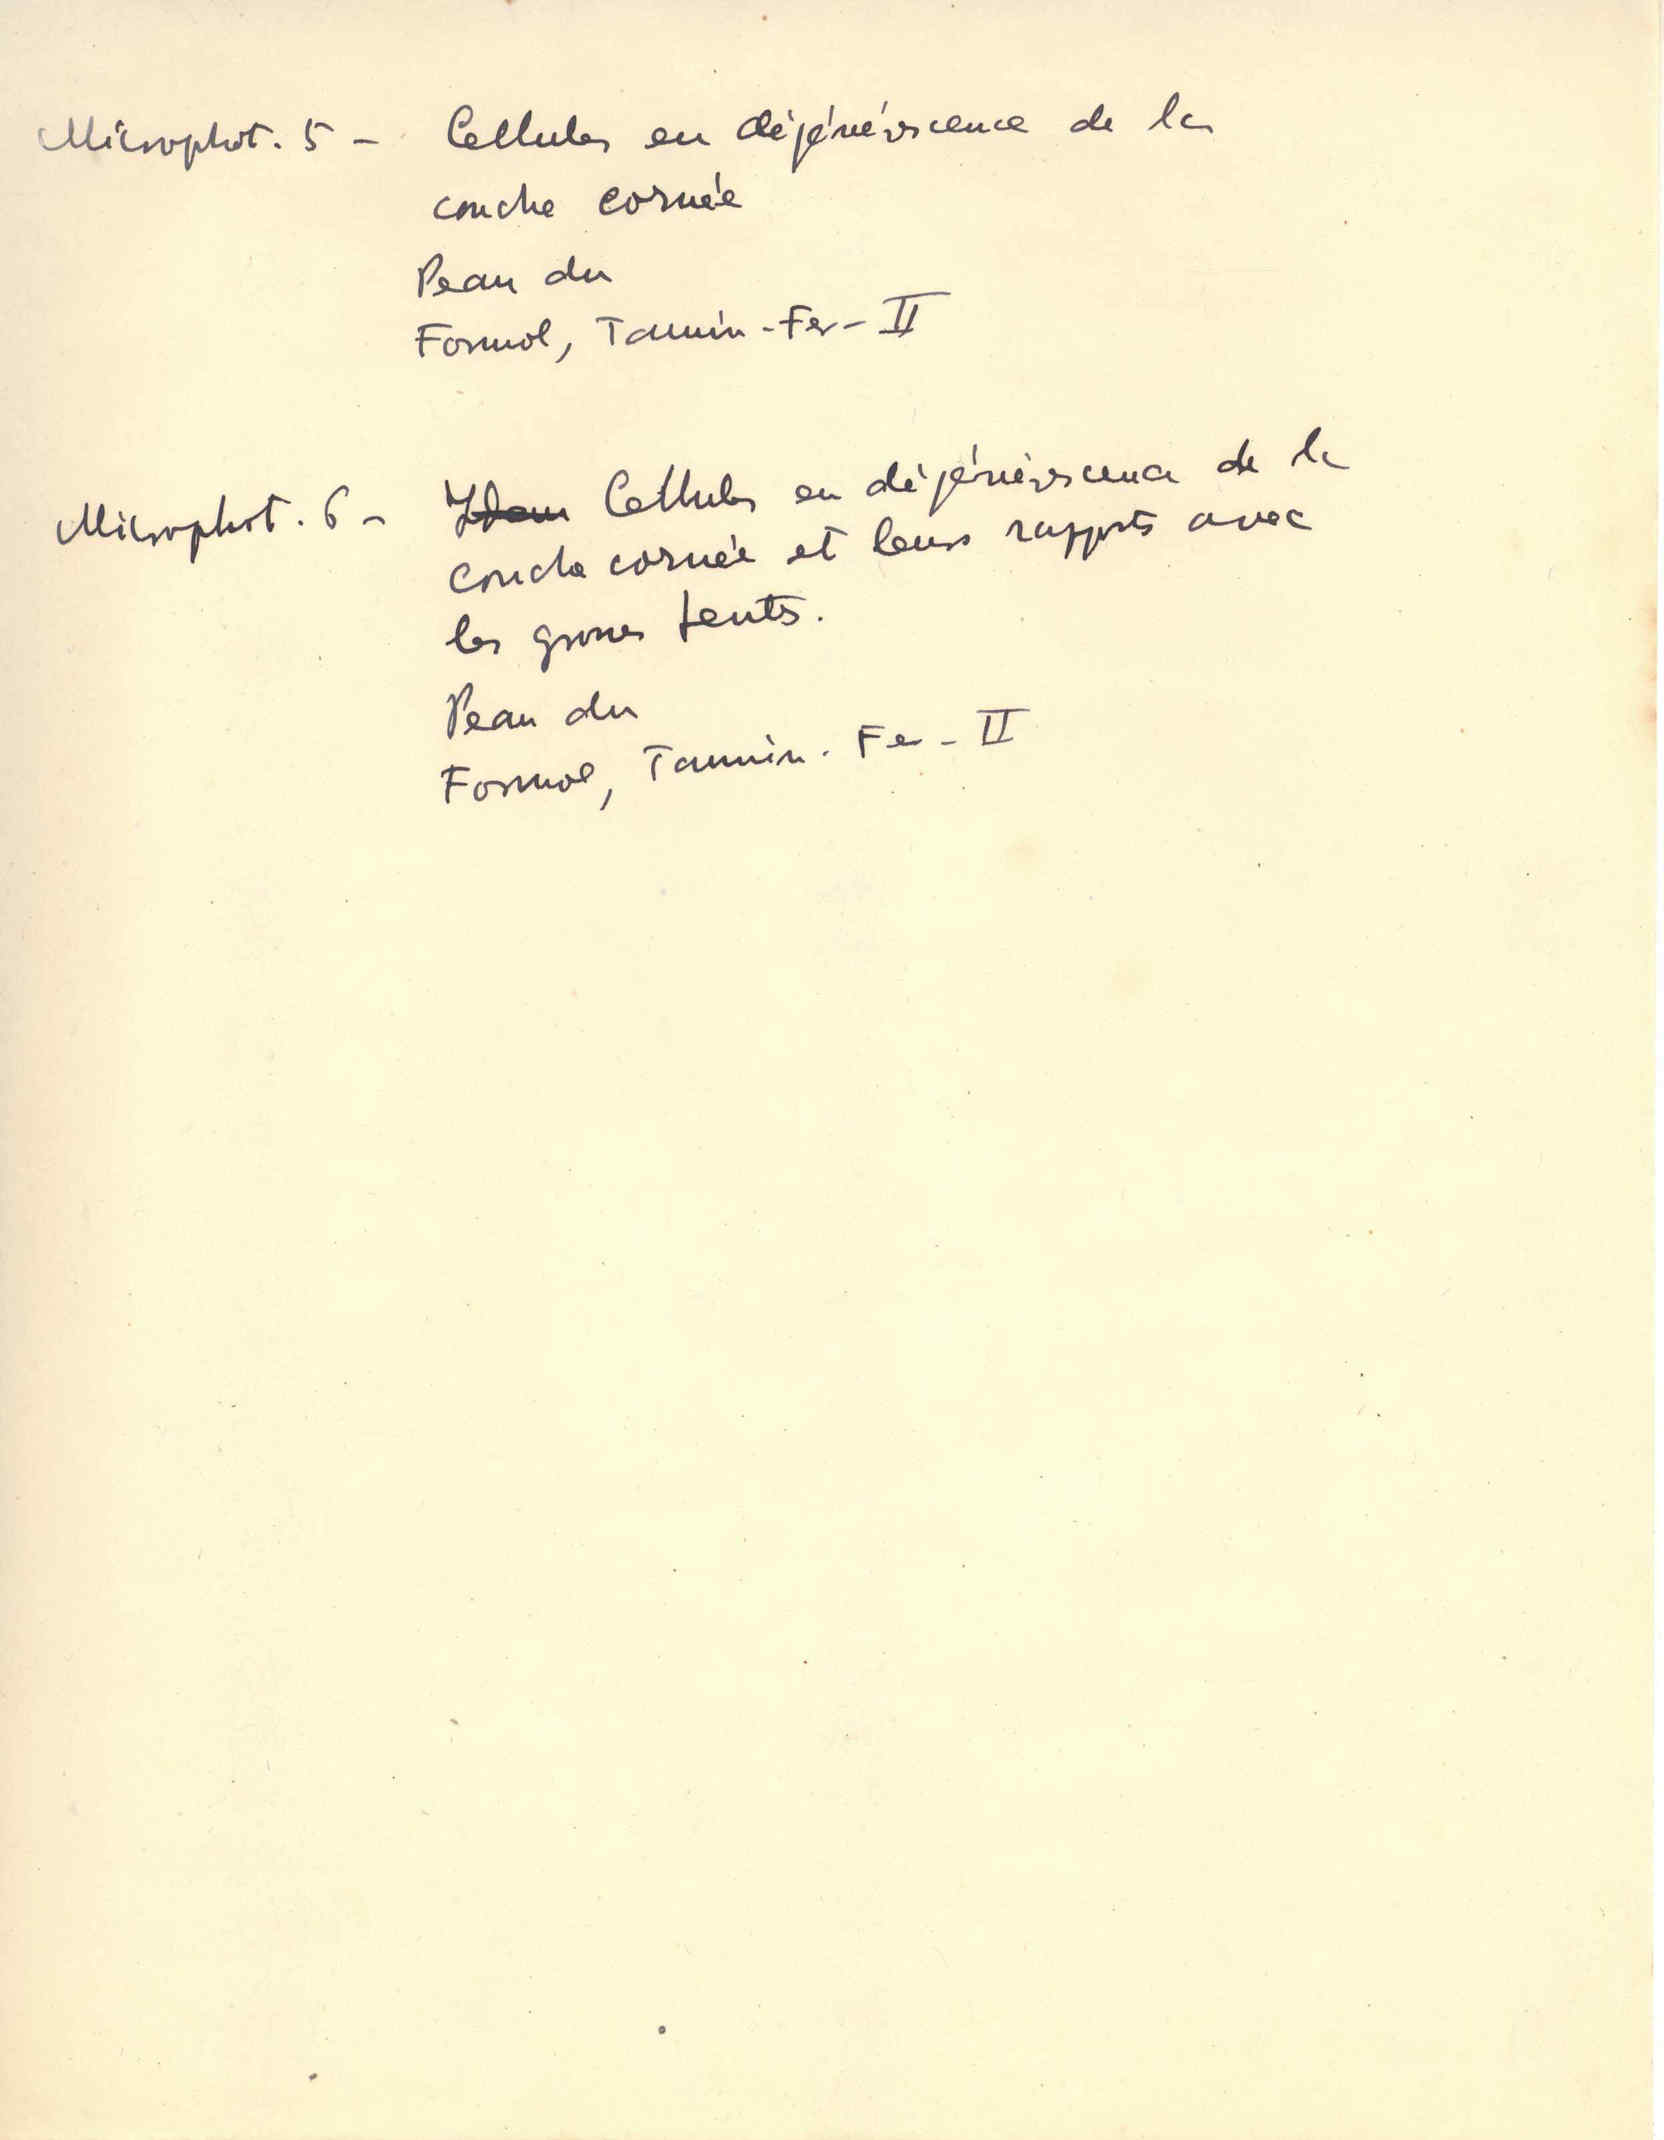 Microphot. 5 - Cellules en dégénérescence de la
couche cornée
Peau du
Formol, Tannin-Fer-II
Microphot. 6 - Idem Cellules en dégénérescence de la
couche cornée et leurs rapports avec
les grosses fents.
Peau du
Formol, Tannin-Fer-II